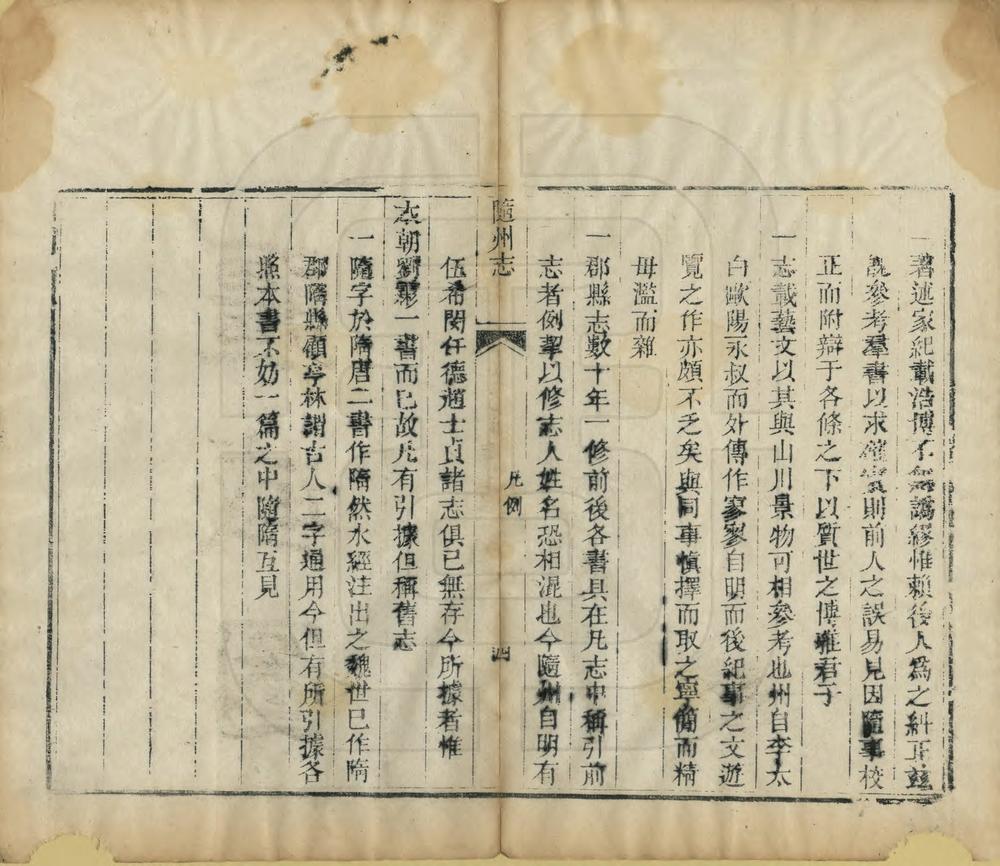 一著述家紀載浩博不無譌繆惟賴後人為之糾正茲
既參考羣書以求確實則前人之誤易見因隨事校
正而附辯于各條之下以質世之博雅君子
一志載藝文以其與山川景物可相參考也州自李太
白歐陽永叔而外傳作寥寥自明而後紀事之文遊
覽之作亦頗不乏矣與同事慎擇而取之寧簡而精
毋濫而雜
一郡縣志數十年一修前後各書具在凡志中稱引前
志者例挈以修志人姓名恐相混也今隨州自明有
隨州志
凡例
四
伍希閔任德趙士貞諸志俱已無存今所據者惟
本朝劉霦一書而已故凡有引據但稱舊志
一隨字於隋唐二書作隋然水經注出之魏世已作隋
郡隋縣顧亭林謂古人二字通用今但有所引據各
照本書不妨一篇之中隨隋互見